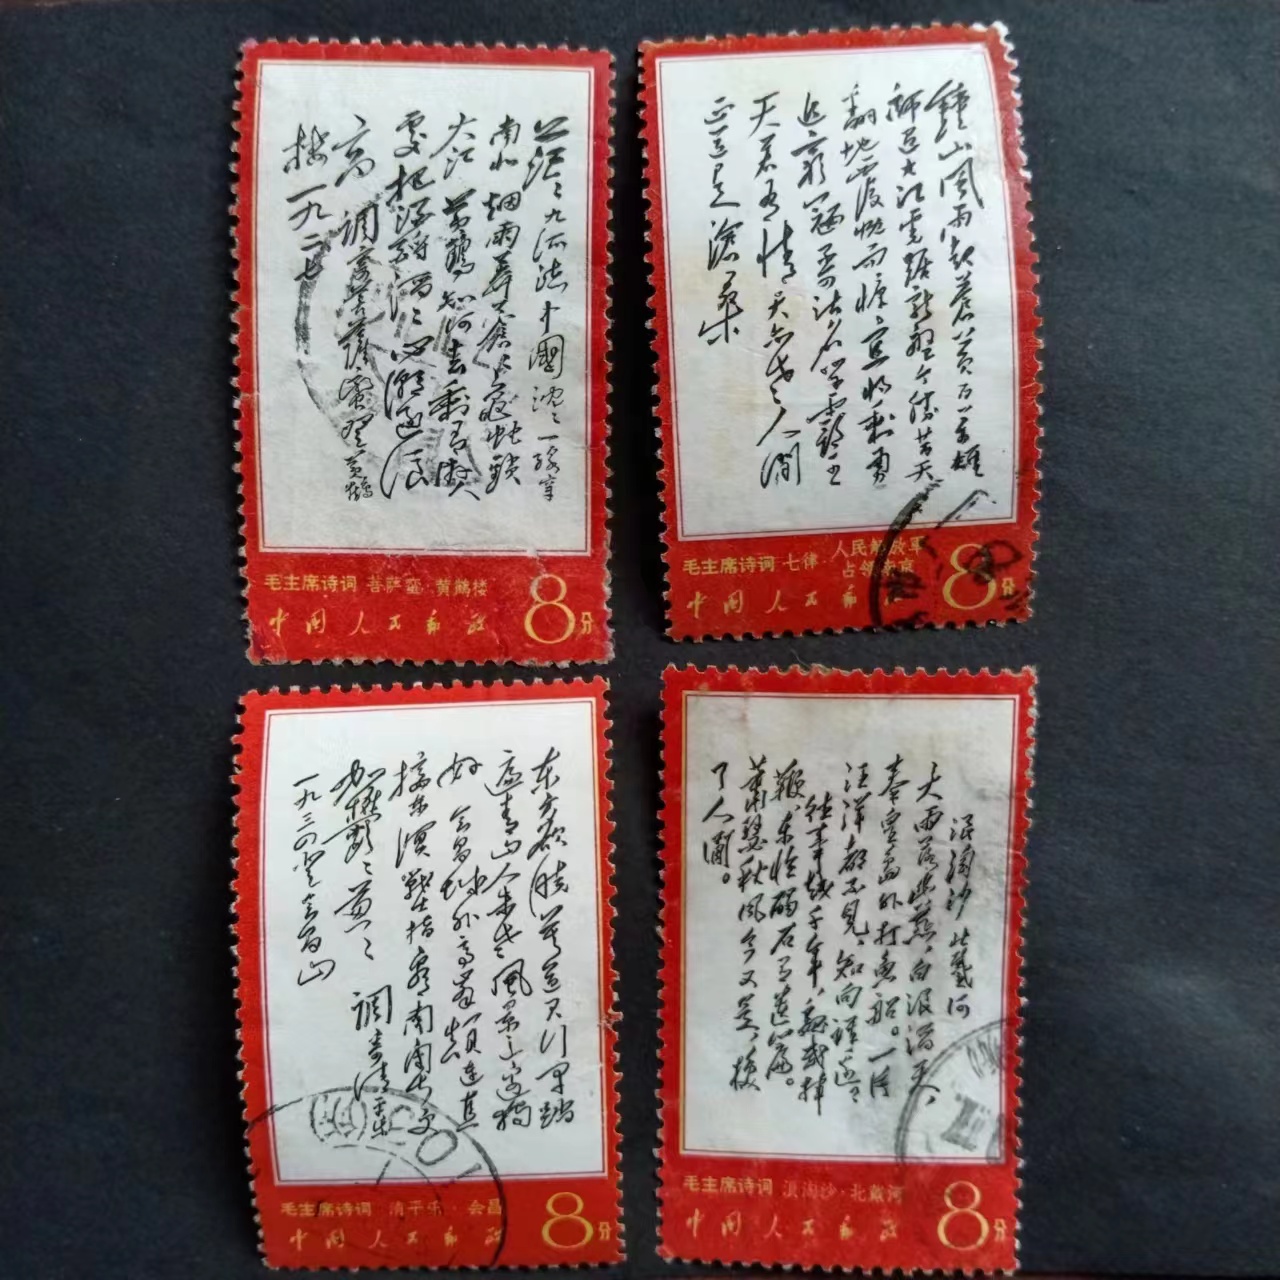 茫〻九派流中國沈〻一线穿
南北烟雨莽蒼〻龜蛇鎖
大江 黃鶴知何去剩有游人
處把酒酹滔〻心潮逐浪
高 調寄菩薩蠻登黃鶴
樓一九二七
毛主席诗词 菩萨蛮·黄鹤楼
中国人民邮政 8分
鍾山風雨起蒼黃百万雄
師过大江虎踞龍盤今勝昔天
翻地覆慨而慷〻宜将剩勇
追窮寇不可沽名学霸王
天若有情天亦老〻人間
正道是滄桑
毛主席诗词 七律·人民解放军
占领南京
中国人民邮政 8分
东方欲曉莫道君行早踏
遍青山人未老〻風景这边独
好 会昌城外高峯顛連直
接东溟戰士指看南粤更
加鬱〻葱〻 調寄清平乐
一九三四登会昌山
毛主席诗词 清平乐·会昌
中国人民邮政 8分
浪淘沙 北戴河
大雨落幽燕，白浪滔天，
秦皇島外打魚船。一片
汪洋都不見，知向誰邊？
往事越千年，魏武揮
鞭，东临碣石有遺篇。
蕭瑟秋風今又是，換
了人間。
毛主席诗词 浪淘沙·北戴河
中国人民邮政 8分